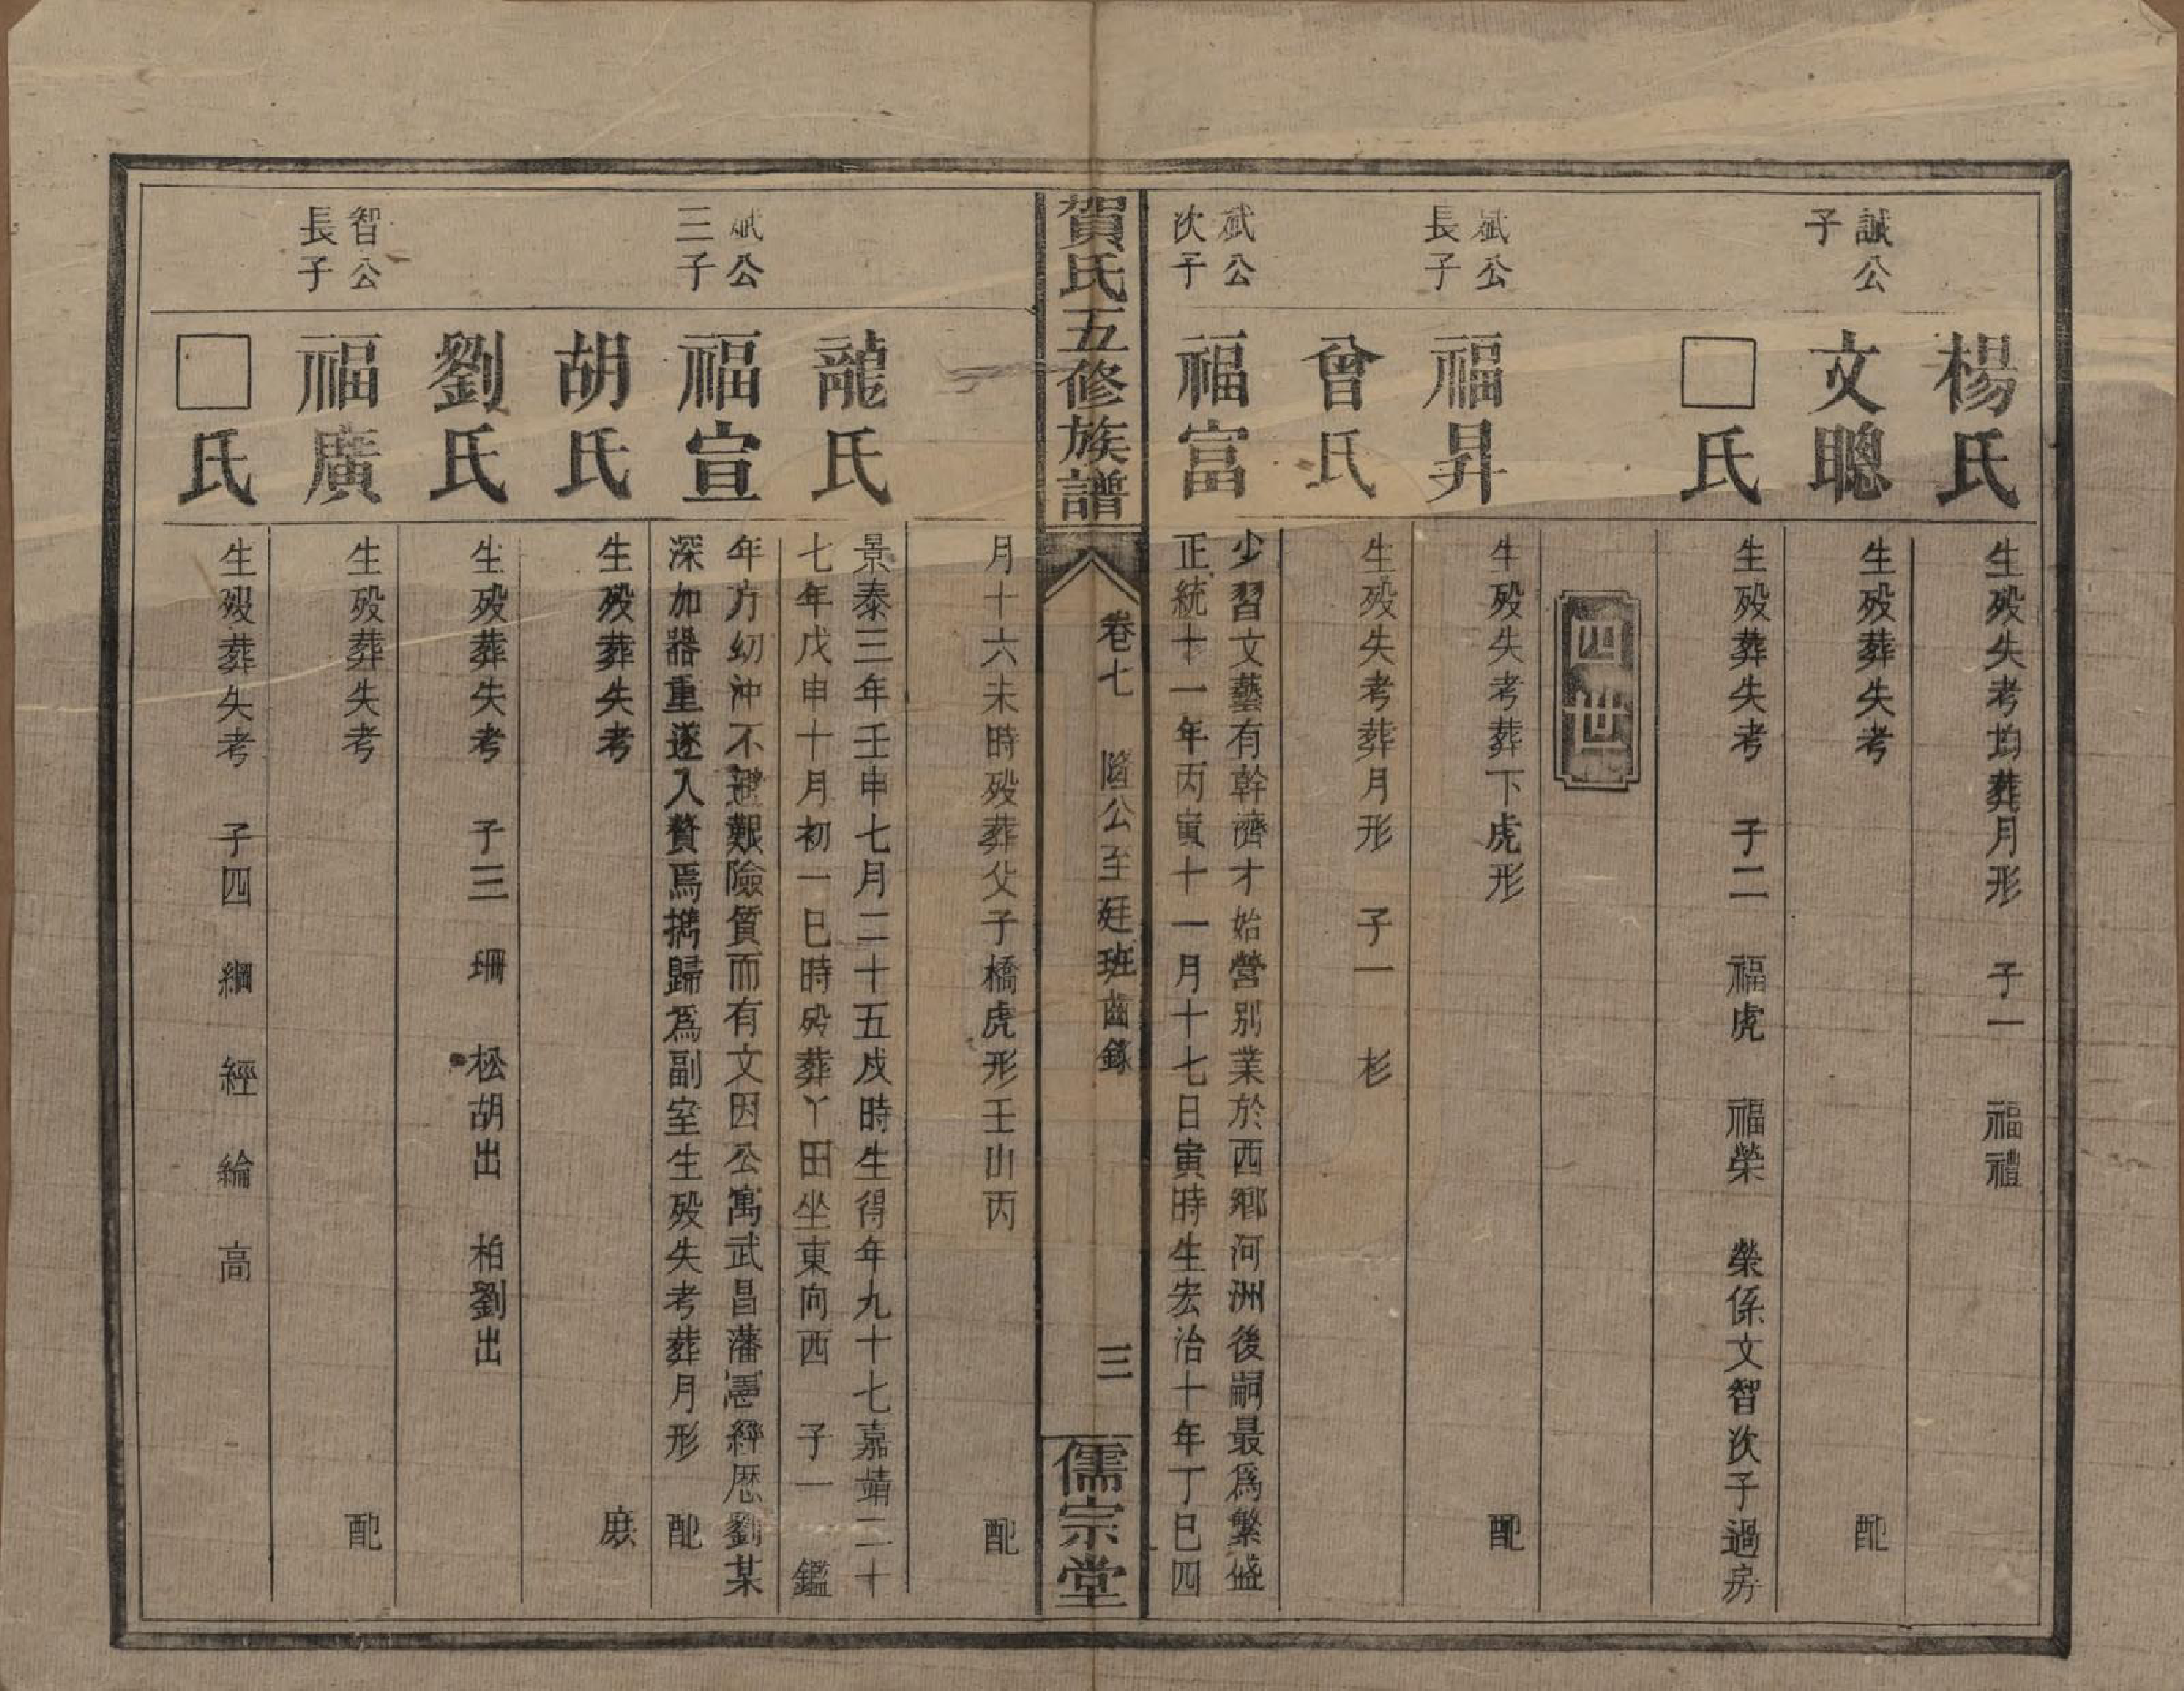 楊氏
生歿失考均葬月形　子一　福禮
誠公
子
文聰
生歿葬失考　配
□氏
生歿葬失考　子二　福虎　福榮　榮係文智次子過房
四世
斌公
長子
福昇
生歿失考葬下虎形　配
曾氏
生歿失考葬月形　子一　杉
斌公
次子
福富
少習文藝有幹濟才始營別業於西鄉河洲後嗣最爲繁盛
正統十一年丙寅十一月十七日寅時生宏治十年丁巳四
賀氏五修族譜
卷七　隆公至廷班齒錄
三
儒宗堂
月十六未時歿葬父子橋虎形壬山丙　配
龍氏
景泰三年壬申七月二十五戌時生得年九十七嘉靖二十
七年戊申十月初一巳時歿葬丫田坐東向西　子一　鑑
斌公
三子
福宣
年方幼沖不避艱險質而有文因公寓武昌藩憲經歷劉某
深加器重遂入贅焉携歸爲副室生歿失考葬月形　配
胡氏
生歿葬失考　庶
劉氏
生歿葬失考　子三　珊　松胡出　柏劉出
智公
長子
福廣
生歿葬失考　配
□氏
生歿葬失考　子四　綱　經　綸　高